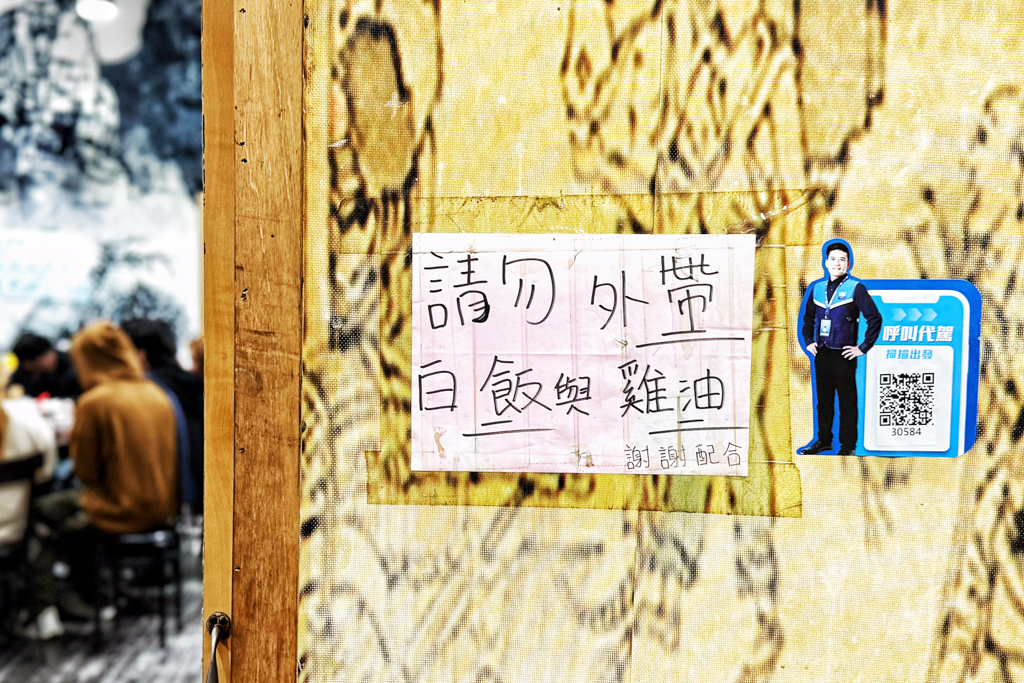 請勿外帶
白飯與雞油
謝謝配合
呼叫代駕
掃描出發
30584